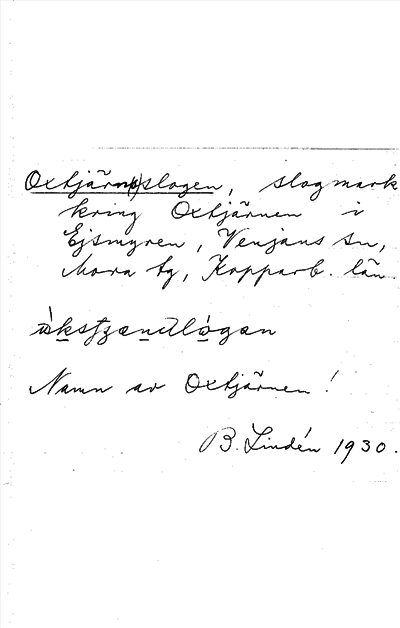 Oxtjärn(s)slogen, slogmark
kring Oxtjärnen i
Ejsmyren, Venjans sn,
Mora tg, Kopparb. län
Namn av Oxtjärnen!
B. Lindén 1930.